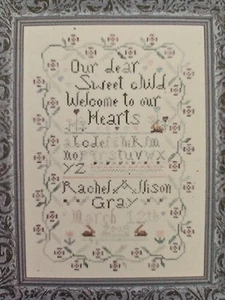 Our dear
Sweet child
Welcome to our
Hearts
abcdefghijklm
nopqrstuvwx
yz
Rachel Allison
Gray
March 12th